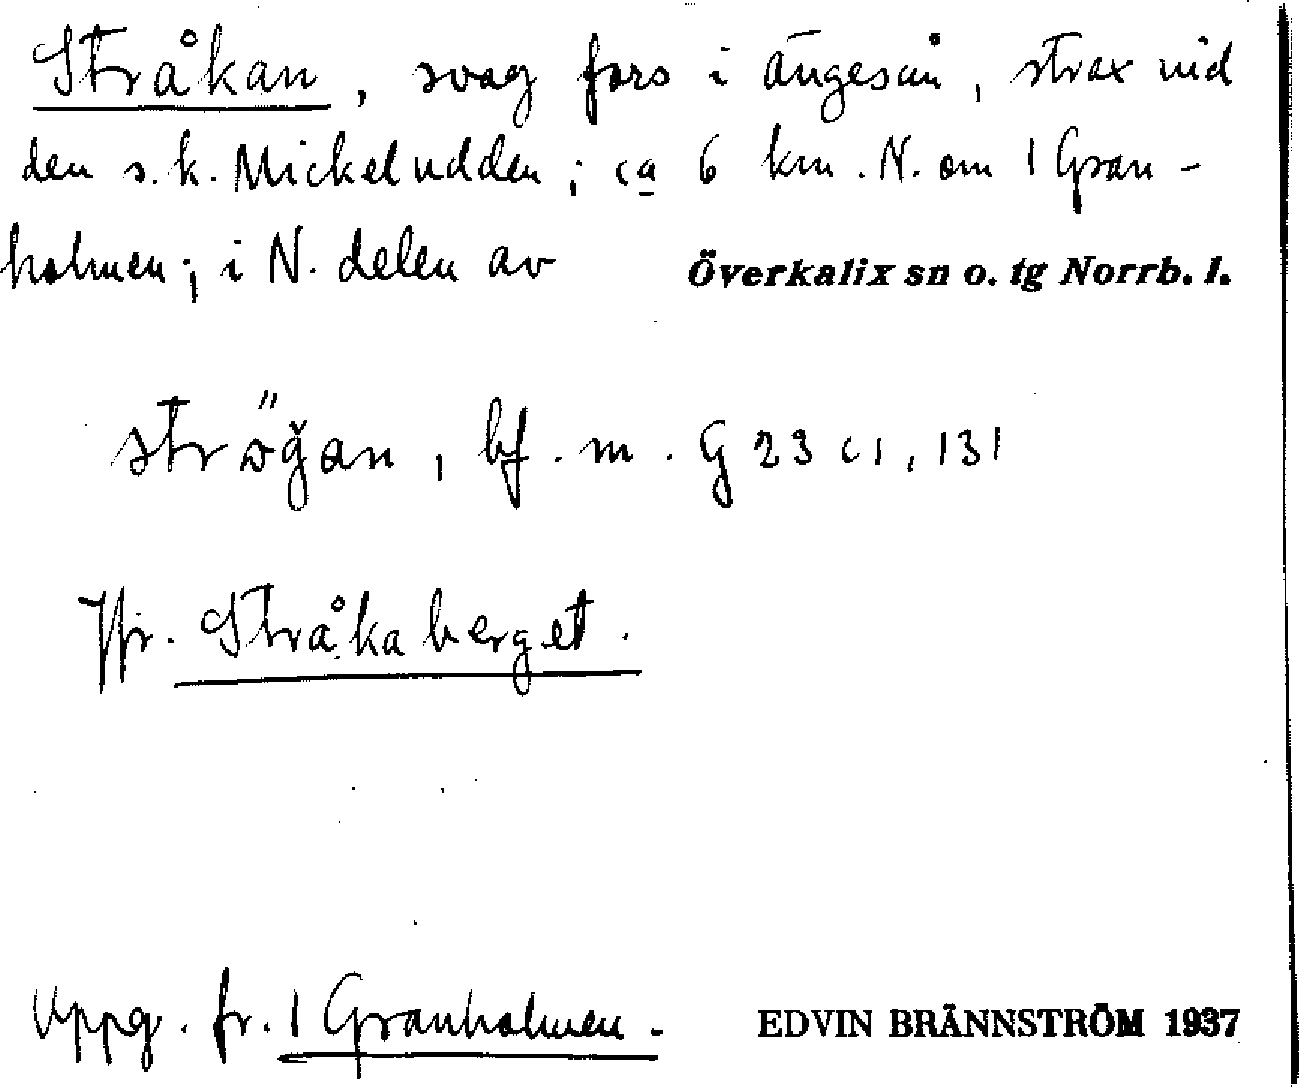 Stråkan, svag fors i Ängesån, strax vid
den s.k. Mickeludden; ca 6 km. N. om 1 Gran-
holmen; i N. delen av Överkalix sn o. tg Norrb. l.
ströǧan, bf. m. G 23 c1, 131
Jfr. Stråkaberget.
Uppg. fr. 1 Granholmen. EDVIN BRÄNNSTRÖM 1937